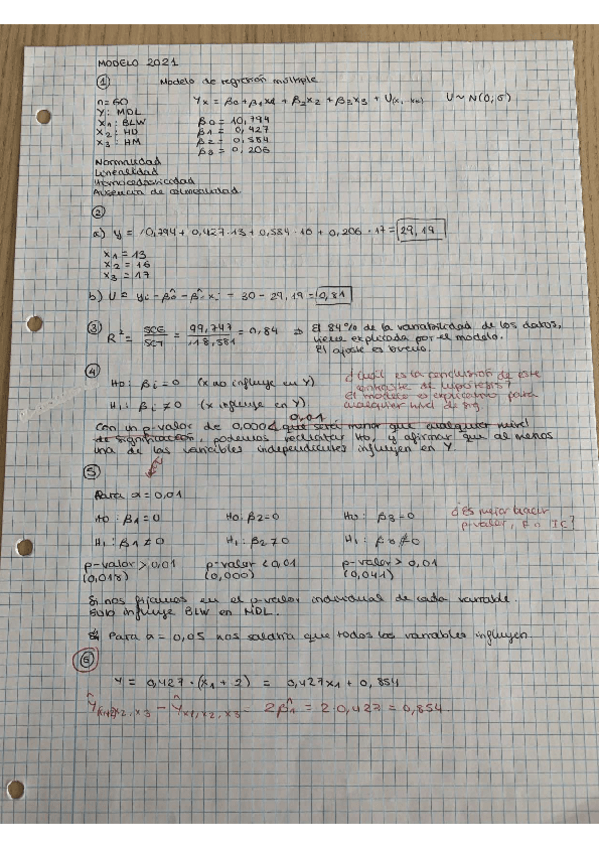 MODELO 2021
① Modelo de regresión múltiple
n=60 Yx = β0+β1x1 + β2x2 + β3x3 + U(x1...xk) U ~ N(0;σ)
Y: MDL β0 = 10,794
X1: BLW β1 = 0,427
X2: HD β2 = 0,584
X3: HM β3 = 0,206
Normalidad
Linealidad
Homocedasticidad
Ausencia de colinealidad
②
a) y = 10,794 + 0,427·13 + 0,584·16 + 0,206·17 = 29,19
X1 = 13
X2 = 16
X3 = 17
b) U = yi - β̂0 - β̂ xi = 30 - 29,19 = 0,81
③ R² = SCE/SCT = 99,747/118,581 = 0,84 ⇒ El 84% de la variabilidad de los datos,
viene explicada por el modelo.
El ajuste es bueno.
④
H0: βi = 0 (x no influye en Y)
H1: βi ≠ 0 (x influye en Y)
¿Cuál es la conclusión de este
contraste de hipótesis?
El modelo es explicativo para
cualquier nivel de sig
0,01
Con un p-valor de 0,000 < que será menor que cualquier nivel
de significación, podemos rechazar H0, y afirmar que al menos
una de las variables independientes influyen en Y.
⑤
Para α = 0,01
H0: β1 = 0 H0: β2 = 0 H0: β3 = 0
H1: β1 ≠ 0 H1: β2 ≠ 0 H1: β3 ≠ 0
¿Es mejor hacer
p-valor, F o IC?
p-valor > 0,01 p-valor < 0,01 p-valor > 0,01
(0,018) (0,000) (0,041)
Si nos fijamos en el p-valor individual de cada variable.
Solo influye BLW en MDL.
Para α = 0,05 nos saldría que todos las variables influyen.
⑥
Y = 0,427·(X1 + 2) = 0,427X1 + 0,854
Ŷx1+2,x2,x3 - Ŷx1,x2,x3 = 2β̂1 = 2·0,427 = 0,854.